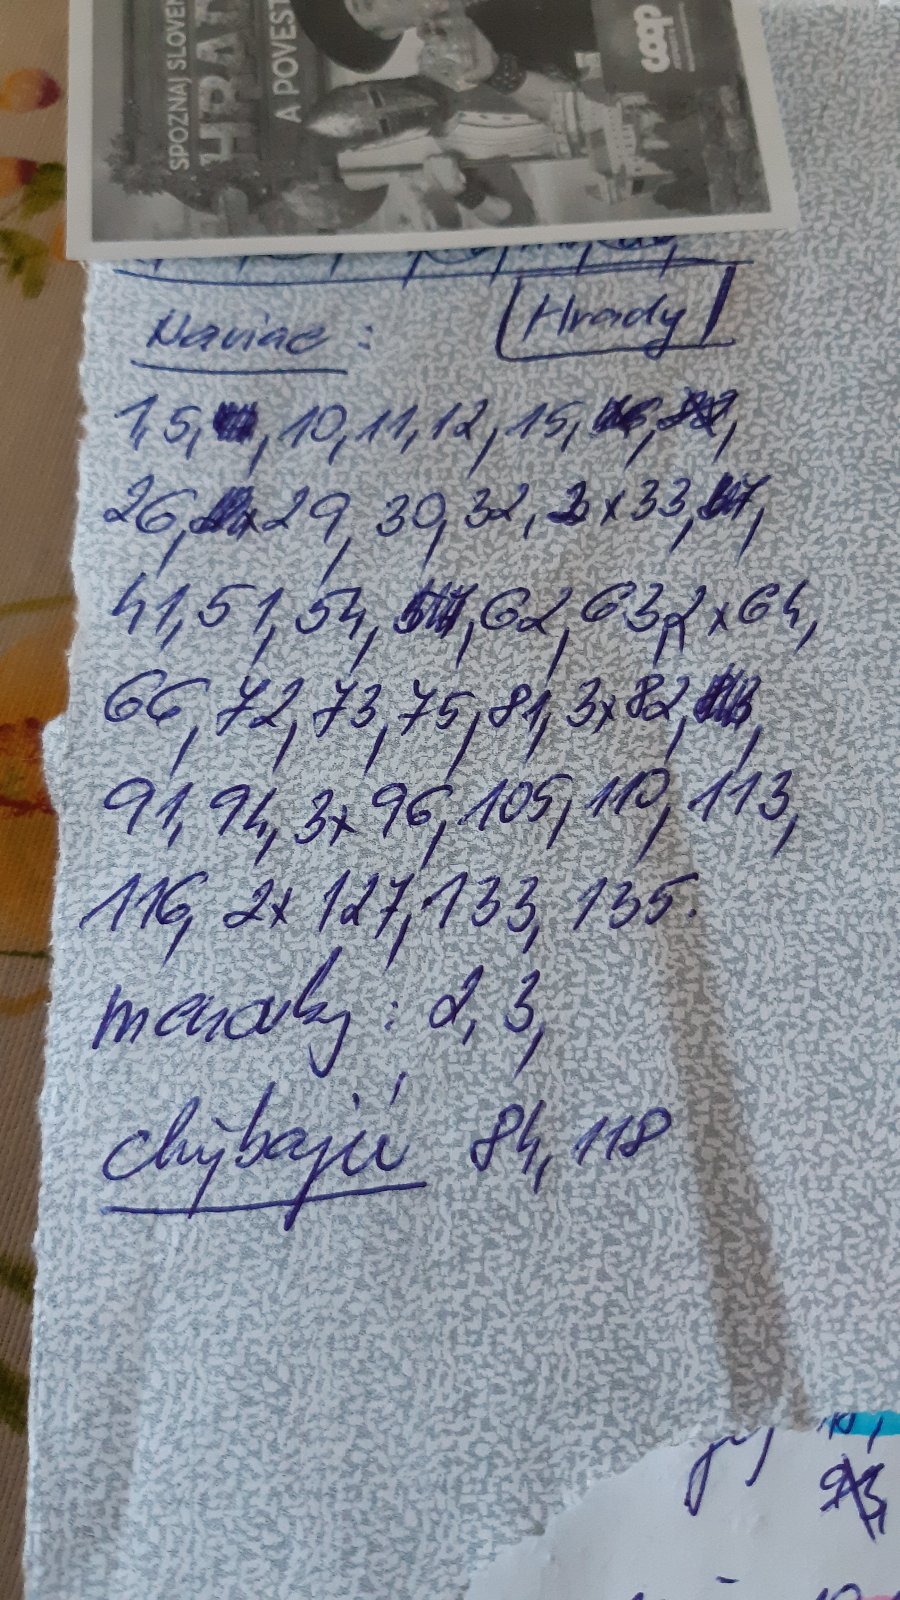 SPOZNAJ SLOVEN
HRAD
A POVEST
coop
Naviac: Hrady
1,5, 10, 11, 12, 15,
26, 29, 30, 32, x 33,
41, 51, 54, 62, 63, 2x64,
66, 72, 73, 75, 81, 3x82,
91, 94, 3x96, 105, 110, 113,
116, 2x 127, 133, 135.
: 2, 3,
chýbajú 84, 118